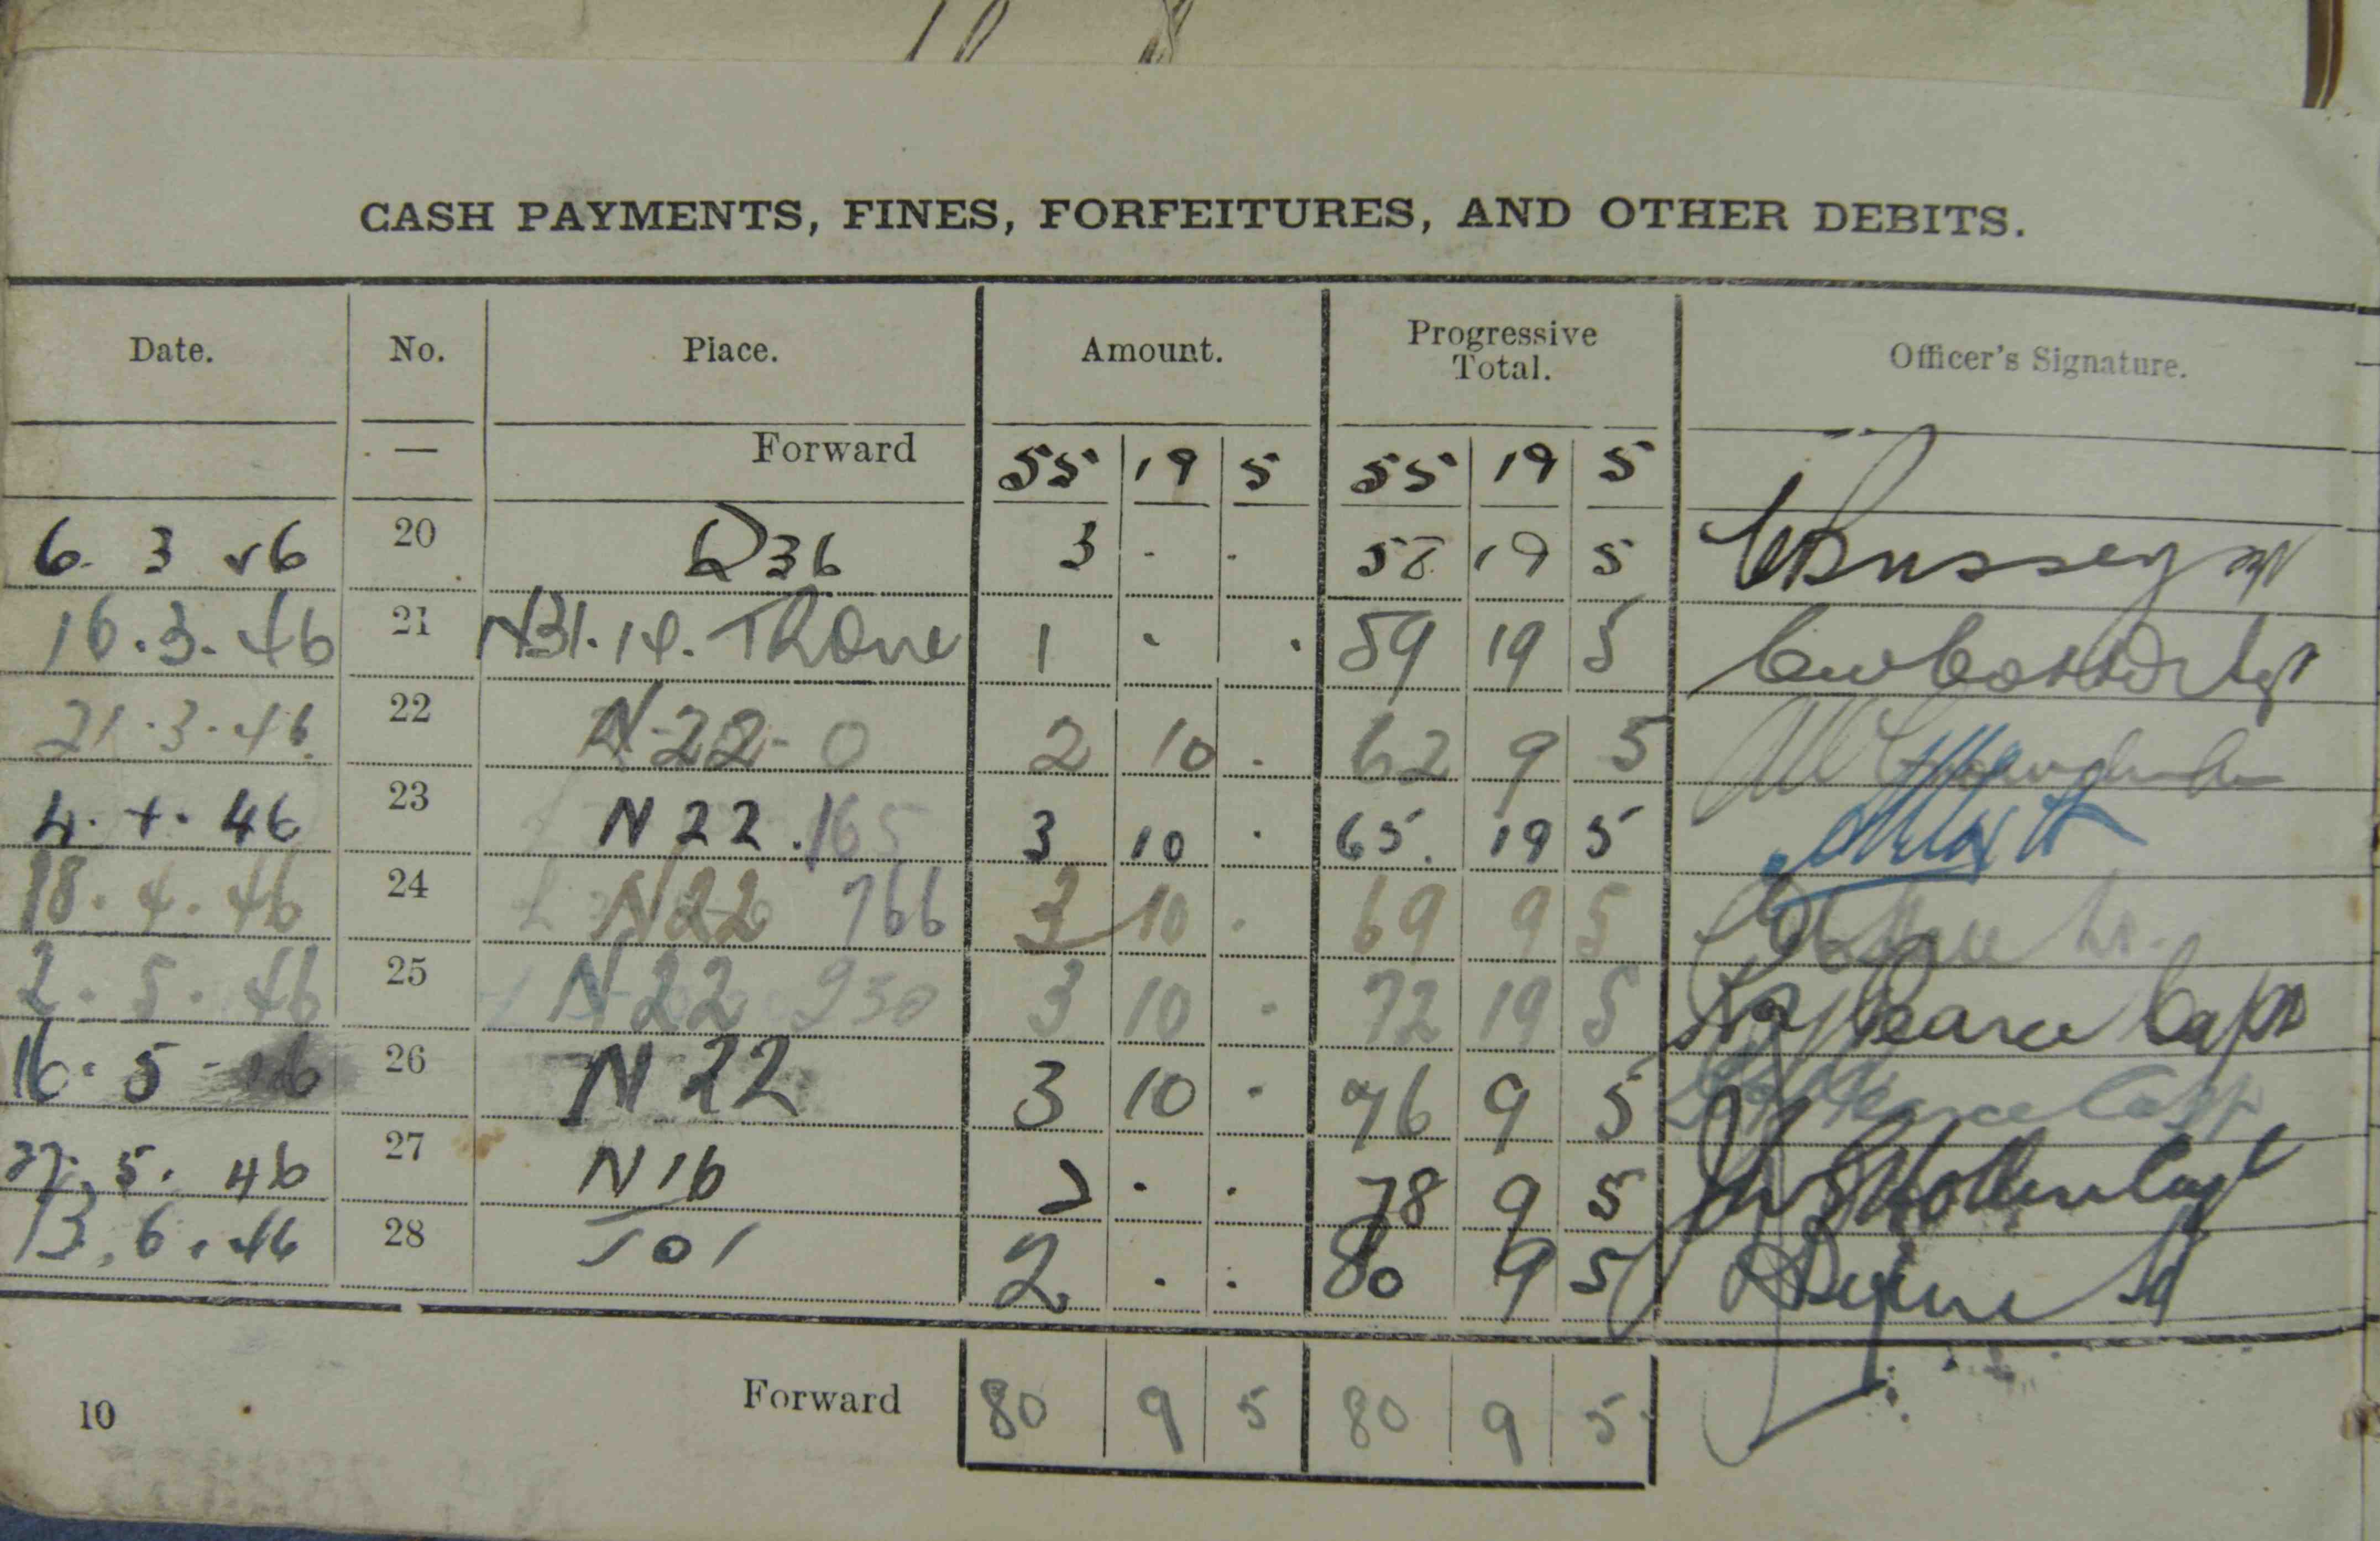 CASH PAYMENTS, FINES, FORFEITURES, AND OTHER DEBITS.
Date. No. Place. Amount. Progressive Total. Officer's Signature.
— Forward 55 19 5 55 19 5
6. 3 46 20 36 3 . . 58 19 5
16.3.46 21 1 . . 59 19 5
21.3.46 22 N-22-0 2 10 . 62 9 5
4.4.46 23 N 22.165 3 10 . 65. 19 5
18.4.46 24 N22 766 3 10 . 69 9 5
2.5.46 25 N22 950 3 10 . 72 19 5 Pearce Capt
16.5-46 26 N 22 3 10 . 76 9 5 Pearce Capt
27.5.46 27 N16 2 . . 78 9 5
13.6.46 28 101 2 . . 80 9 5
Forward 80 9 5 80 9 5
10